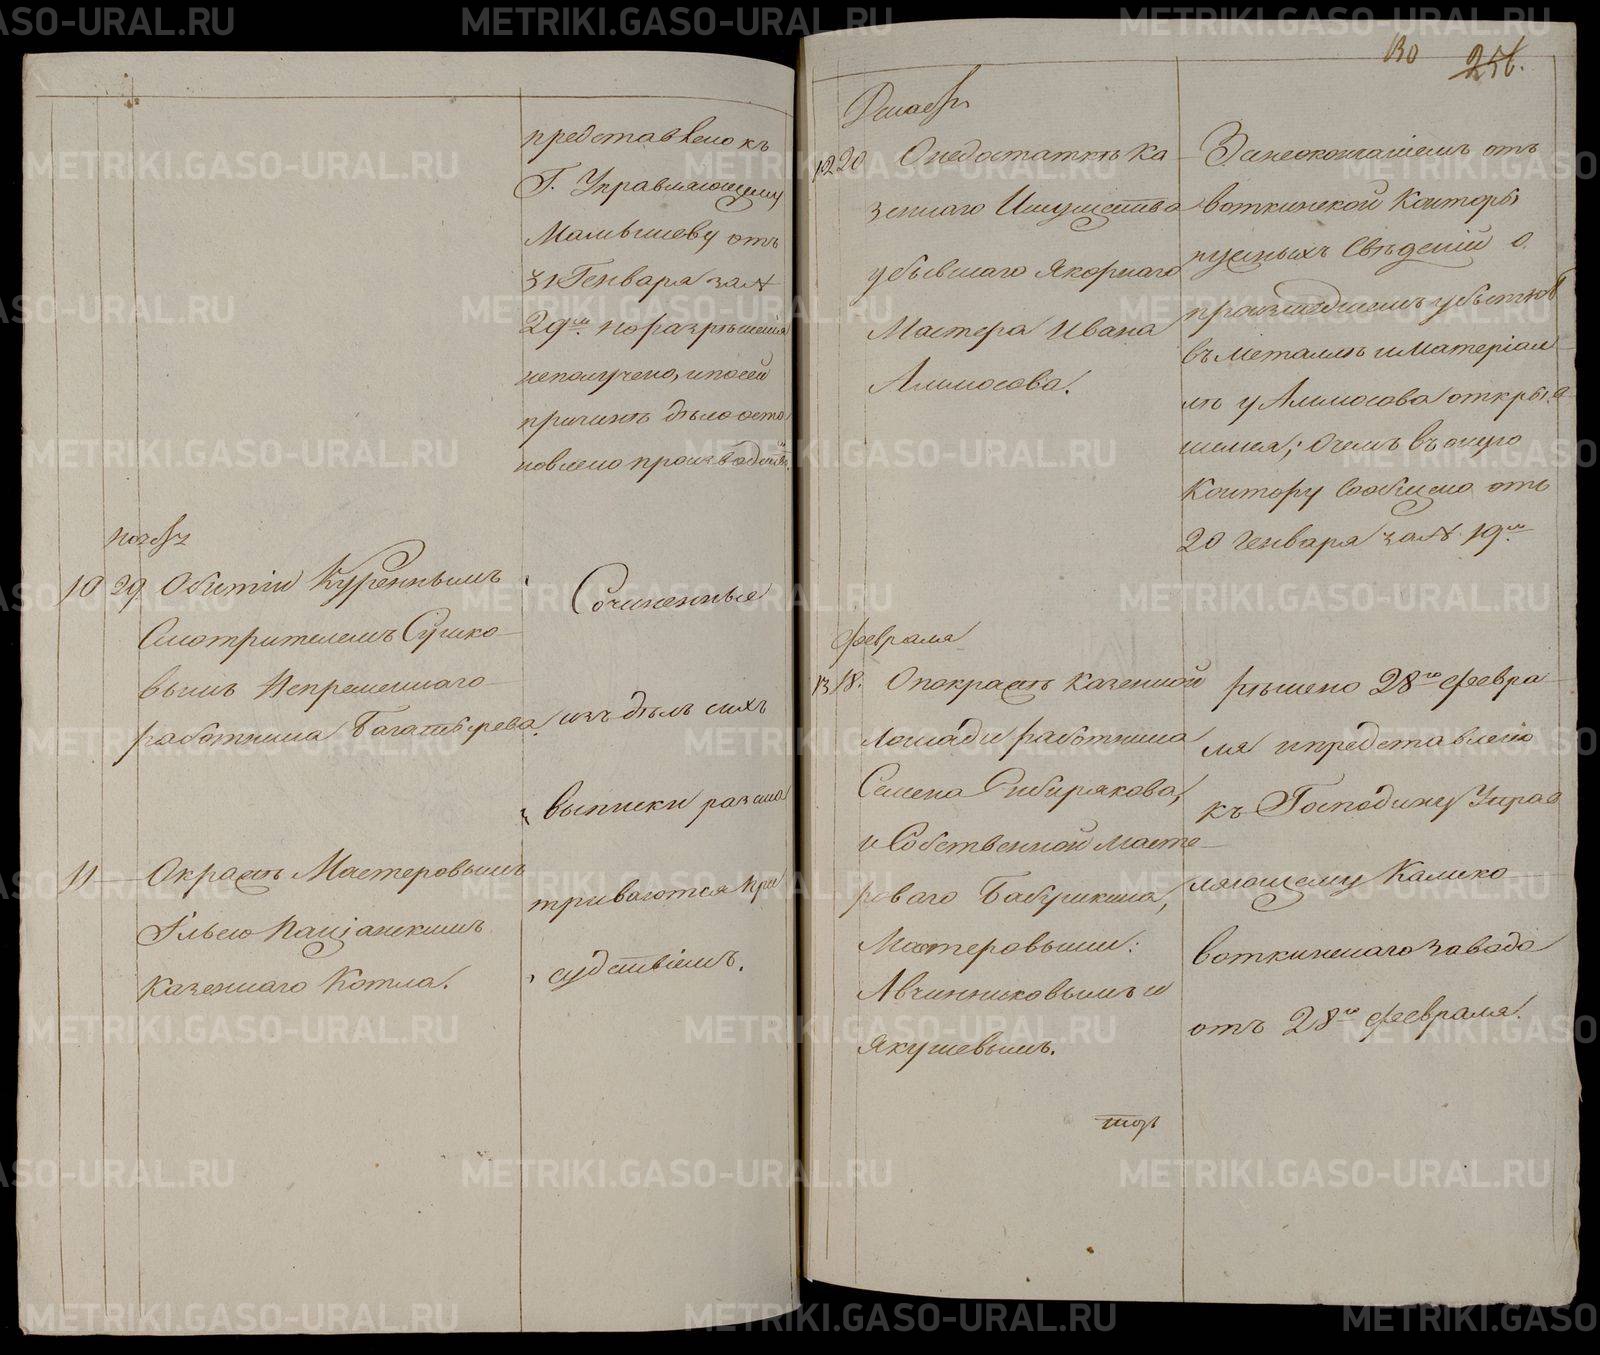 представлено къ
Г. Управляющему
Малышеву отъ
31 Генваря за №
29мъ. но разрѣшенія
неполучено, и посей
причинѣ дѣло оста
новлено производствомъ.
ноябрь
10 29 О битіи Куреннымъ
Смотрителемъ Сушко
вымъ Непременнаго
работника Багатырева.
Сочиненные
изъ дѣлъ сихъ
выписки разсма
триваются при
судствіемъ.
11 — О кражѣ Мастеровымъ
Ильею
казеннаго Котла.
130 256.
Декабрь
12 20 О недостаткѣ Ка
зеннаго Имущества
у бывшаго якорнаго
Мастера Ивана
Алимосова.
За неокончаніемъ отъ
воткинской Конторы
нужныхъ Свѣденій о
произшедшемъ убыткѣ
въ металлѣ и матеріал
лѣ у Алимосова открыв
шемся; о чемъ въ оную
Контору Сообщено отъ
20 Генваря за № 19мъ
февраля
13 18. О покражѣ казенной
лошади работника
Семена Сибирякова,
и Собственной масте
роваго Бабушкина,
Мастеровыми:
Авчинниковымъ и
Якушевымъ.
рѣшено 28го февра
ля и представлено
къ Господину Управ
ляющему Камско
воткинскаго завода
отъ 28го февраля.